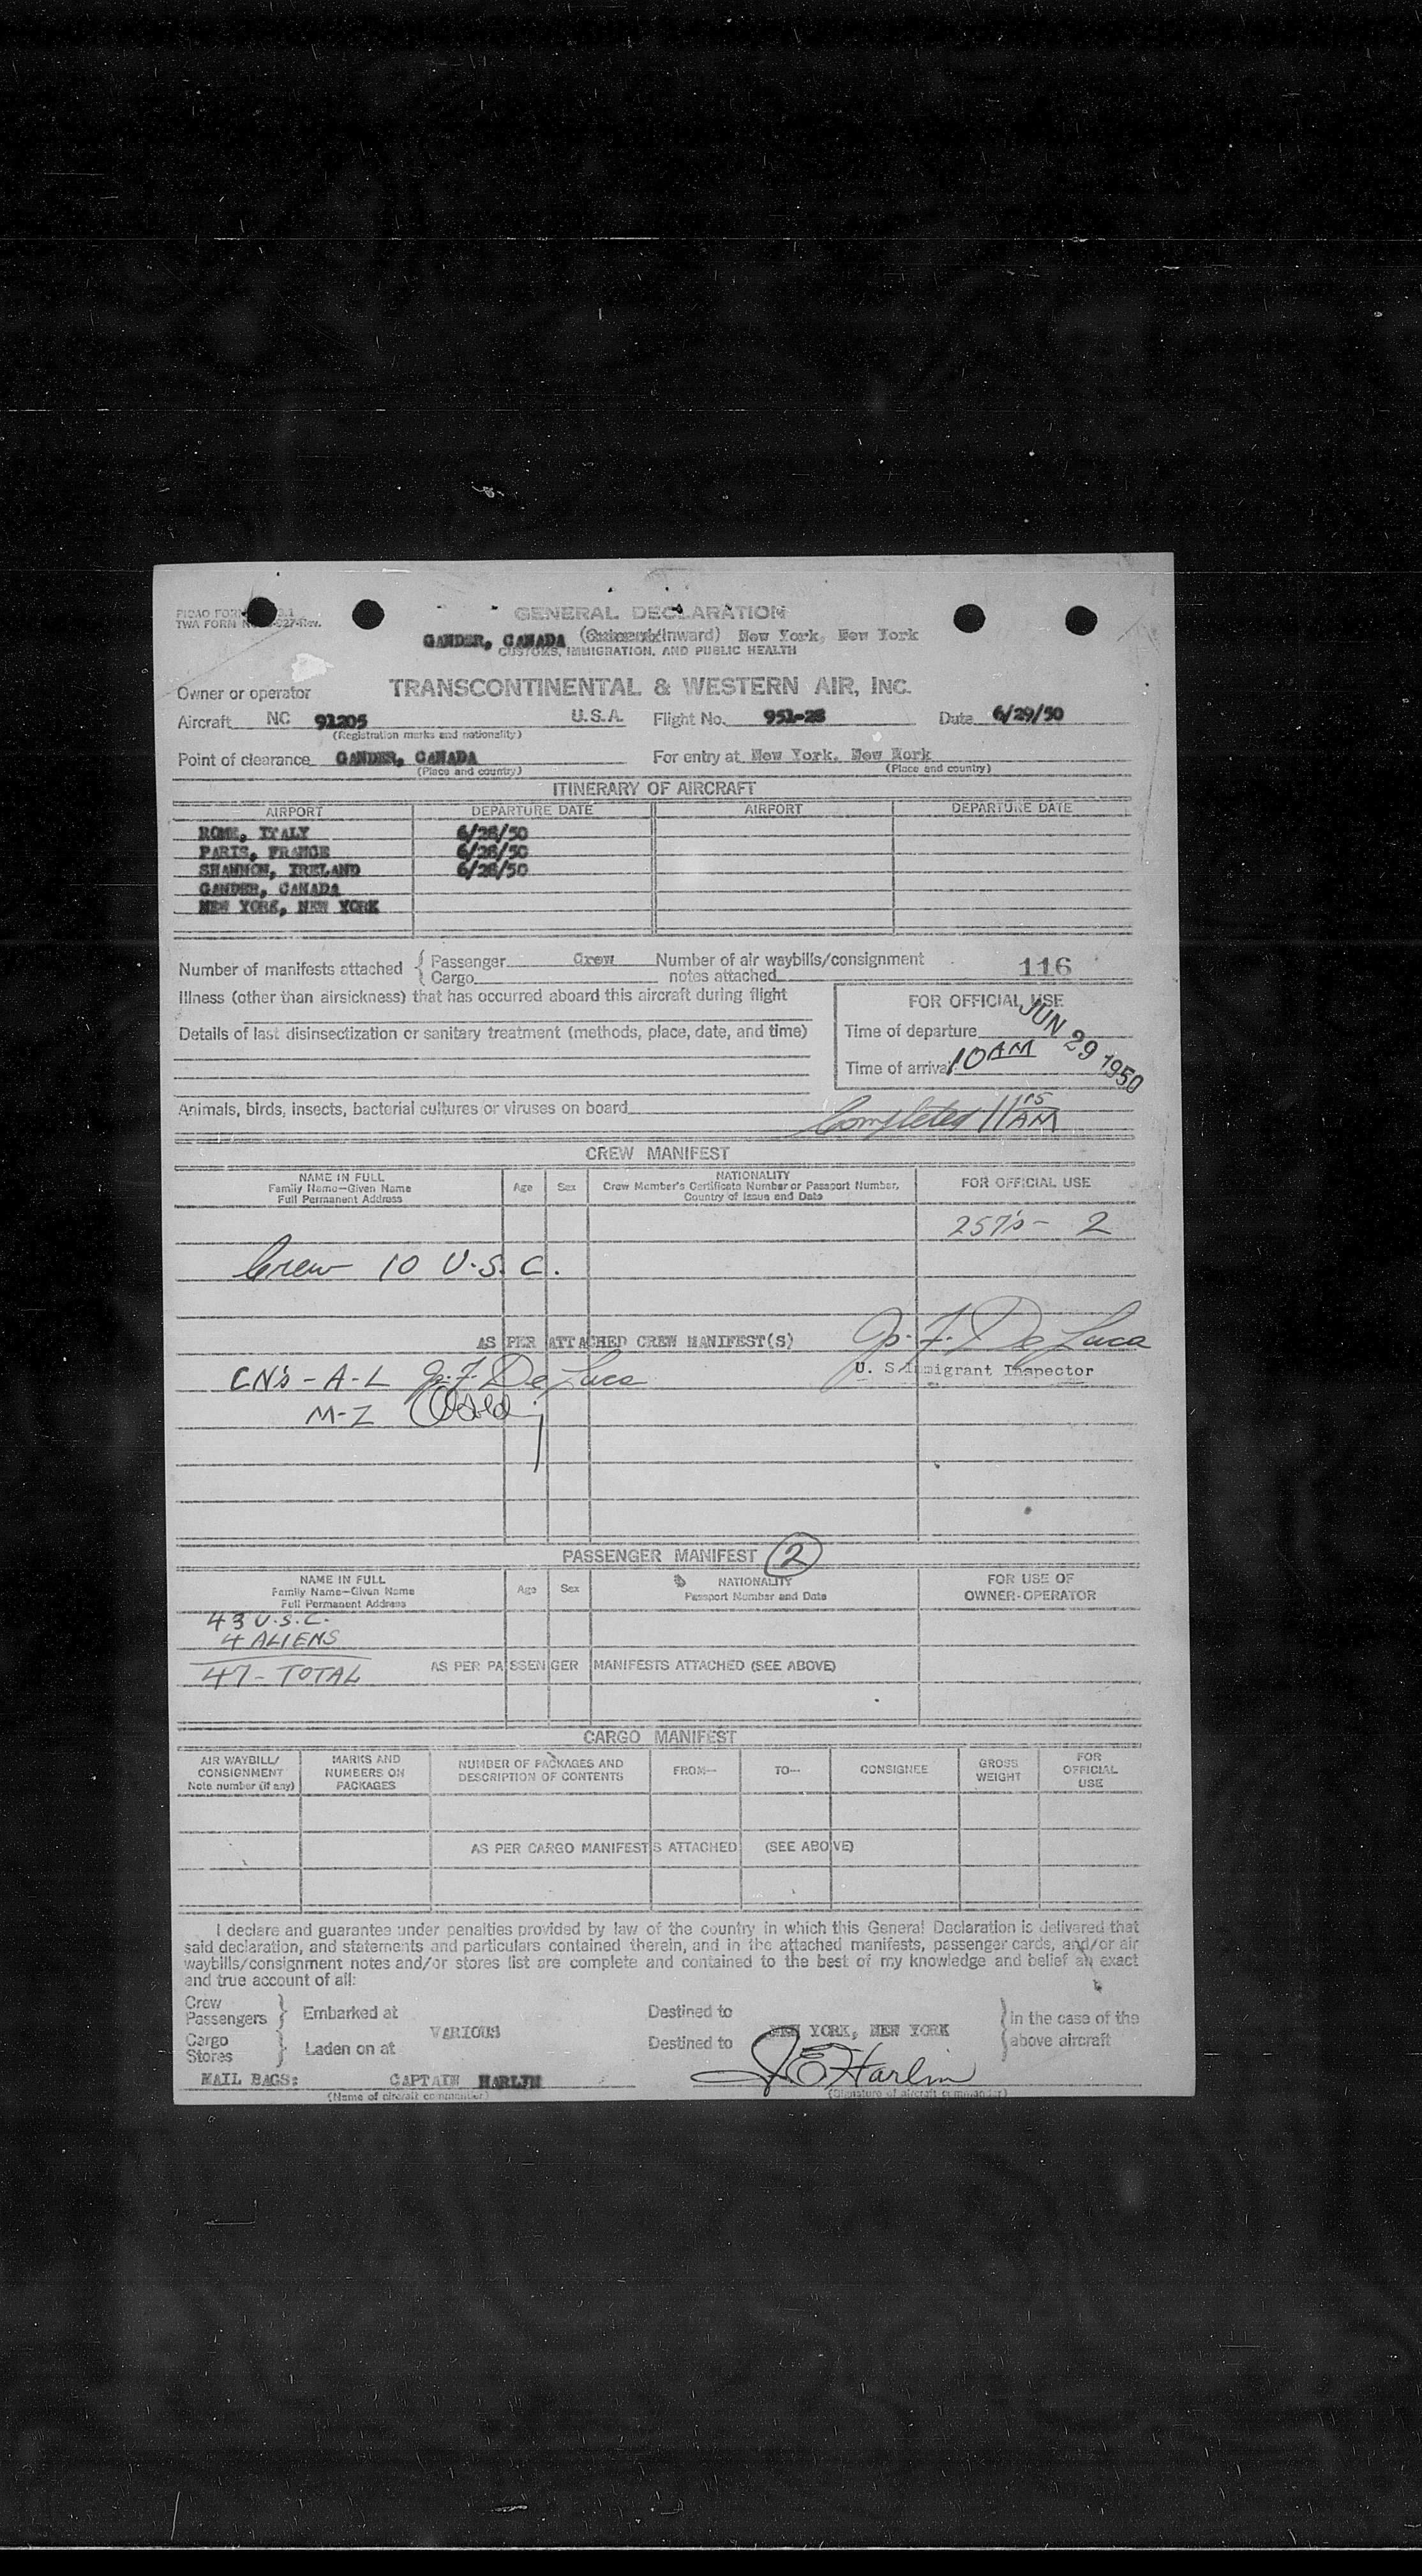 GENERAL DECLARATION
TWA FORM
GANDER, CANADA (Inward) New York, New York
CUSTOMS, IMMIGRATION, AND PUBLIC HEALTH
Owner or operator TRANSCONTINENTAL & WESTERN AIR, INC.
Aircraft NC 91205 U.S.A. Flight No. 951-28 Date 6/29/50
(Registration marks and nationality)
Point of clearance GANDER, CANADA For entry at New York, New York
(Place and country) (Place and country)
ITINERARY OF AIRCRAFT
AIRPORT DEPARTURE DATE AIRPORT DEPARTURE DATE
ROME, ITALY 6/28/50
PARIS, FRANCE 6/28/50
SHANNON, IRELAND 6/28/50
GANDER, CANADA
NEW YORK, NEW YORK
Number of manifests attached { Passenger Crew Number of air waybills/consignment 116
Cargo notes attached
Illness (other than airsickness) that has occurred aboard this aircraft during flight
FOR OFFICIAL USE
Details of last disinsectization or sanitary treatment (methods, place, date, and time)
Time of departure JUN 29 1950
Time of arrival 10 AM
Animals, birds, insects, bacterial cultures or viruses on board
Completed 11 15 AM
CREW MANIFEST
NAME IN FULL Age Sex NATIONALITY FOR OFFICIAL USE
Family Name—Given Name Crew Member's Certificate Number or Passport Number,
Full Permanent Address Country of Issue and Date
257's - 2
Crew 10 U.S.C.
AS PER ATTACHED CREW MANIFEST(S) J. F. De Luca
CN's - A-L J. F. De Luca U. S. Immigrant Inspector
M-Z
PASSENGER MANIFEST 2
NAME IN FULL Age Sex NATIONALITY FOR USE OF
Family Name—Given Name Passport Number and Date OWNER-OPERATOR
Full Permanent Address
43 U.S.C.
4 ALIENS
47 - TOTAL AS PER PASSENGER MANIFESTS ATTACHED (SEE ABOVE)
CARGO MANIFEST
AIR WAYBILL/ MARKS AND NUMBER OF PACKAGES AND FROM— TO— CONSIGNEE GROSS FOR
CONSIGNMENT NUMBERS ON DESCRIPTION OF CONTENTS WEIGHT OFFICIAL
Note number (if any) PACKAGES USE
AS PER CARGO MANIFESTS ATTACHED (SEE ABOVE)
I declare and guarantee under penalties provided by law of the country in which this General Declaration is delivered that
said declaration, and statements and particulars contained therein, and in the attached manifests, passenger cards, and/or air
waybills/consignment notes and/or stores list are complete and contained to the best of my knowledge and belief an exact
and true account of all:
Crew
Passengers } Embarked at Destined to } In the case of the
VARIOUS NEW YORK, NEW YORK
Cargo
Stores } Laden on at Destined to above aircraft
MAIL BAGS: CAPTAIN HARLIN J E Harlin
(Name of aircraft commander) (Signature of aircraft commander)